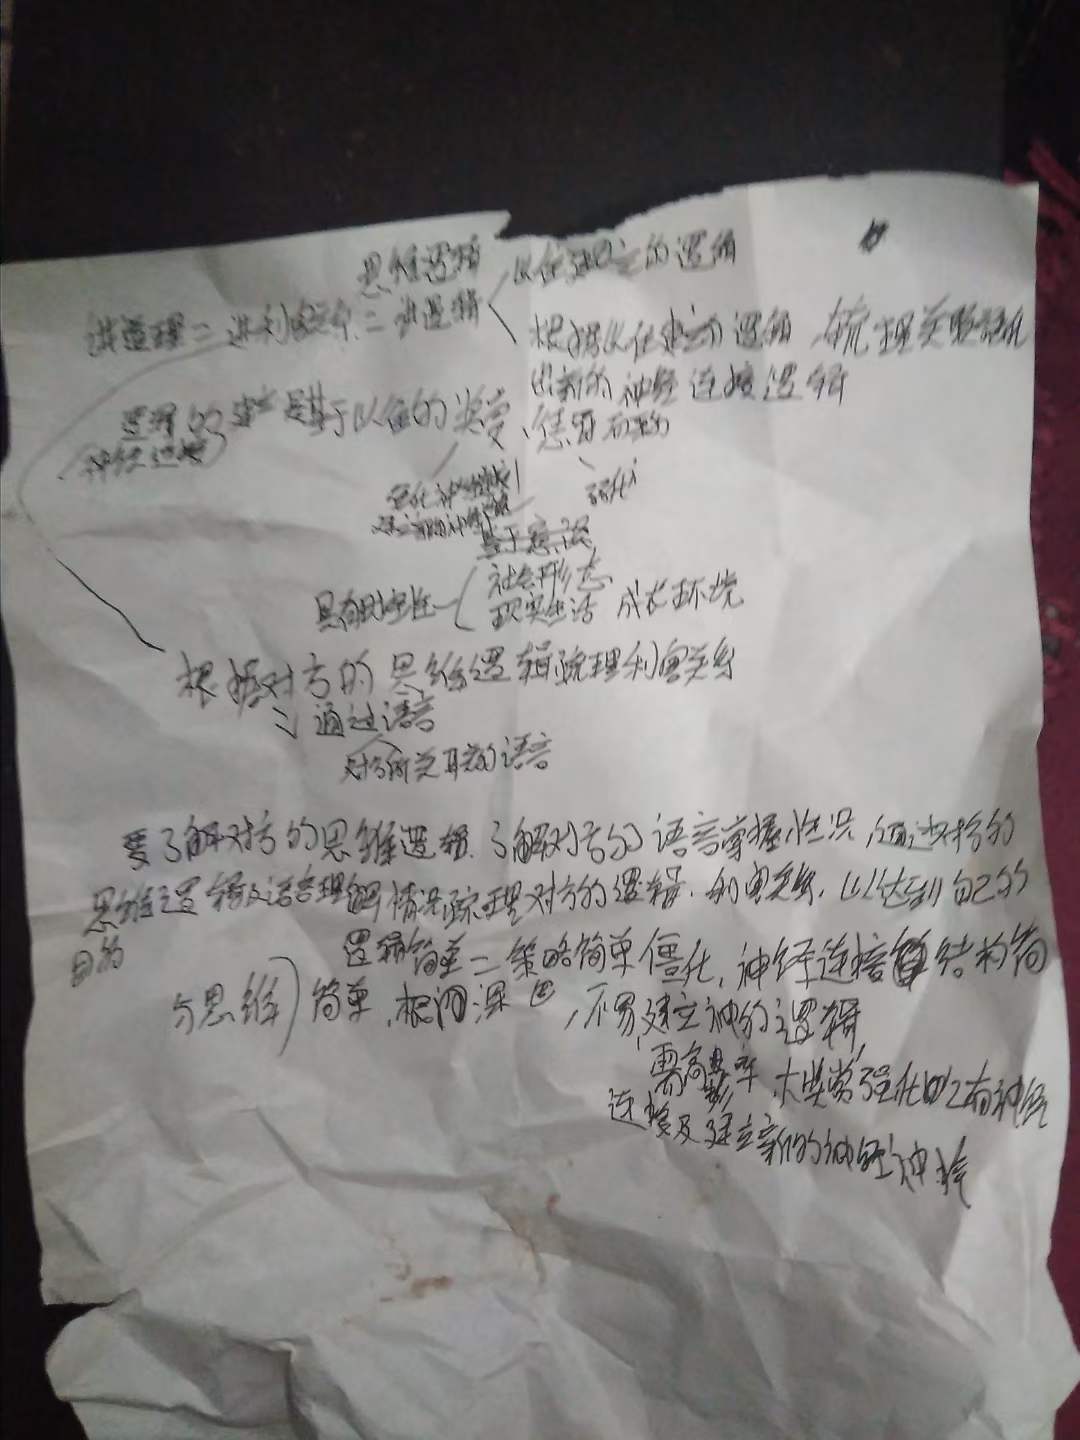 思维逻辑
以往建立的逻辑
讲道理=讲利害关系=讲逻辑
根据以往建立的逻辑,梳理关联
出新的神经连接逻辑
逻辑的 是基于以往的奖赏、惩罚
神经连接
强化
具有时空性
社会形态
现实生活 成长环境
根据对方的思维逻辑梳理利害关系
通过语言
对方所关联的语言
要了解对方的思维逻辑,了解对方的语言掌握情况,通过对方的
思维逻辑及语言理解情况梳理对方的逻辑,利害关系,以达到自己的
目的
逻辑简单=策略简单僵化,神经连接结构简
与思维 简单,根深 固,不易建立新的逻辑
需高 率,大奖赏强化以有神经
连接及建立新的神经